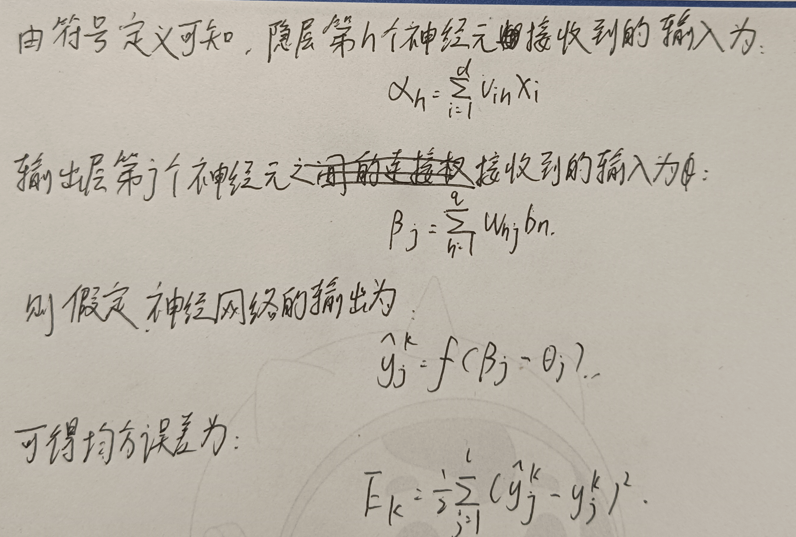 由符号定义可知，隐层第h个神经元接收到的输入为:
αh = Σ_{i=1}^{d} v_{ih} x_i
输出层第j个神经元之间的连接权接收到的输入为:
β_j = Σ_{h=1}^{q} w_{hj} b_n.
则假定神经网络的输出为:
ŷ_j^k = f(β_j - θ_j).
可得均方误差为:
E_k = 1/2 Σ_{j=1}^{l} (ŷ_j^k - y_j^k)².